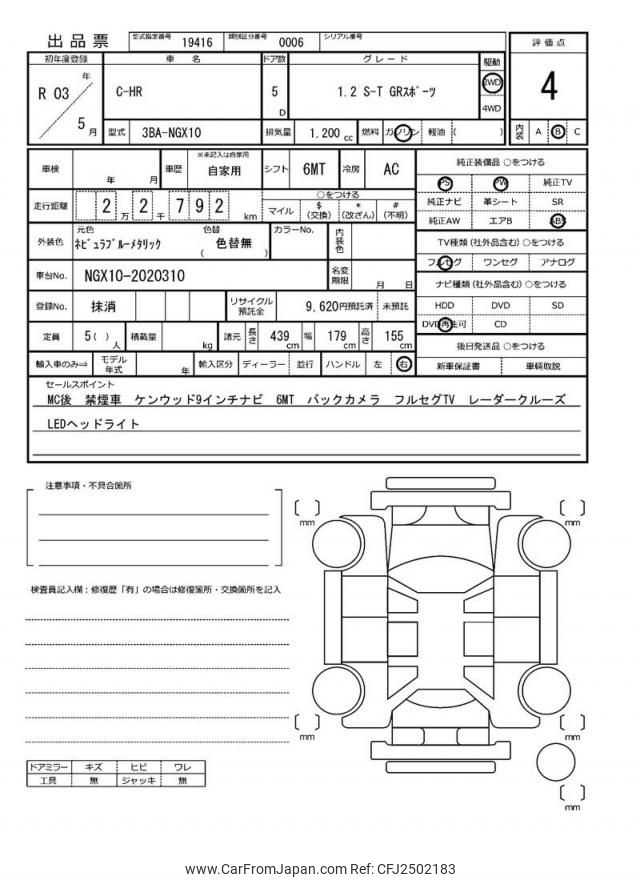 出品票
型式指定番号 19416 類別区分番号 0006 シリアル番号
初年度登録 車 名 ドア数 グレード 駆動 評価点
R 03 年 5 月 C-HR 5 D 1.2 S-T GRｽﾎﾟｰﾂ 2WD 4WD 4
型式 3BA-NGX10 排気量 1.200 cc 燃料 ガソリン 軽油 ( ) 内装 A B C
車検 年 月 車歴 ※未記入は自家用 自家用 シフト 6MT 冷房 AC
純正装備品 ○をつける
PS PW 純正TV
純正ナビ 革シート SR
純正AW エアB ABS
走行距離 2 万 2 千 7 9 2 km ○をつける マイル $ (交換) * (改ざん) # (不明)
外装色 元色 ﾈﾋﾞｭﾗﾌﾞﾙｰﾒﾀﾘｯｸ 色替 色替無 ( ) カラーNo. 内装色
TV種類 (社外品含む) ○をつける
フルセグ ワンセグ アナログ
車台No. NGX10-2020310 名変期限 月 日
ナビ種類 (社外品含む) ○をつける
HDD DVD SD
DVD再生可 CD
登録No. 抹消 リサイクル預託金 9,620円預託済 未預託
定員 5( ) 人 積載量 kg 諸元 長さ 439 cm 幅 179 cm 高さ 155 cm
後日発送品 ○をつける
新車保証書 車輌取説
輸入車のみ⇒ モデル年式 年 輸入区分 ディーラー 並行 ハンドル 左 右
セールスポイント
MC後 禁煙車 ケンウッド9インチナビ 6MT バックカメラ フルセグTV レーダークルーズ
LEDヘッドライト
注意事項・不具合箇所
検査員記入欄：修復歴「有」の場合は修復箇所・交換箇所を記入
mm
mm
mm
mm
mm
ドアミラー キズ ヒビ ワレ
工具 無 ジャッキ 無
www.CarFromJapan.com Ref: CFJ2502183